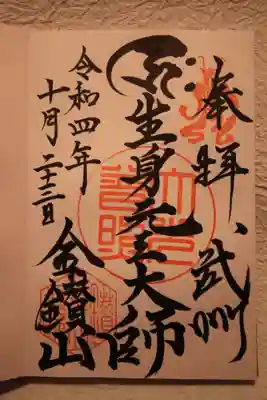 奉拝、武州
生身元三大師
大光普照
金鑚山
令和四年
十月二十三日